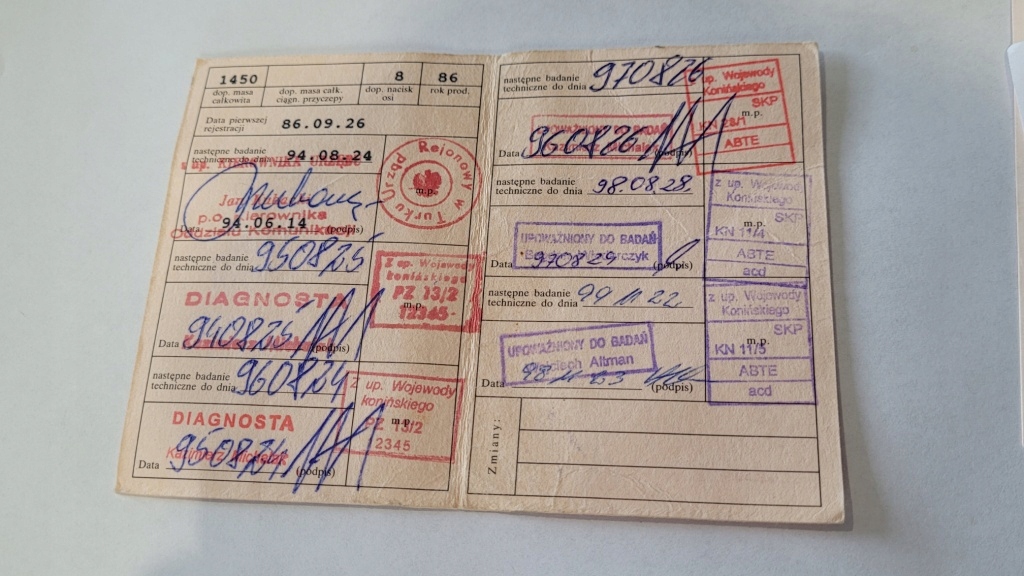 1450 8 86
dop. masa całkowita dop. masa całk. ciągn. przyczepy dop. nacisk osi rok prod.
Data pierwszej rejestracji 86.09.26
następne badanie techniczne do dnia 94.08.24
Urząd Rejonowy w Turku
m.p.
p.o. Kierownika
Oddziału Komunikacji
Data 94.06.14 (podpis)
następne badanie techniczne do dnia 950825
Z up. Wojewody
konińskiego
PZ 13/2
m.p.
12345
DIAGNOSTA
Data 940825 (podpis)
następne badanie techniczne do dnia 960824
Z up. Wojewody
konińskiego
m.p.
PZ 13/2
2345
DIAGNOSTA
Kazimierz Michalak
Data 950824 (podpis)
następne badanie techniczne do dnia 970826
z up. Wojewody
Konińskiego
SKP
m.p.
KN 28/1
ABTE
UPOWAŻNIONY DO BADAŃ
Kazimierz Michalak
Data 960826 (podpis)
następne badanie techniczne do dnia 98.08.28.
z up. Wojewody
Konińskiego
SKP
m.p.
KN 11/4
ABTE
acd
UPOWAŻNIONY DO BADAŃ
Data 970829 (podpis)
następne badanie techniczne do dnia 99 11 22
z up. Wojewody
Konińskiego
SKP
m.p.
KN 11/5
ABTE
acd
UPOWAŻNIONY DO BADAŃ
Wojciech Altman
Data 98 11 23 (podpis)
Zmiany: